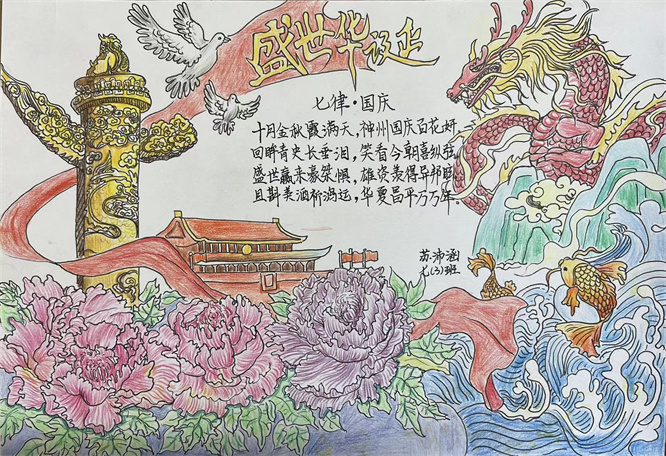 盛世华诞
七律·国庆
十月金秋霞满天,神州国庆百花妍。
回眸青史长垂泪,笑看今朝喜纵
盛世赢来豪杰 ,雄姿羡得异邦
且斟美酒祈鸿运,华夏昌平万万年。
苏沛涵
七(3)班